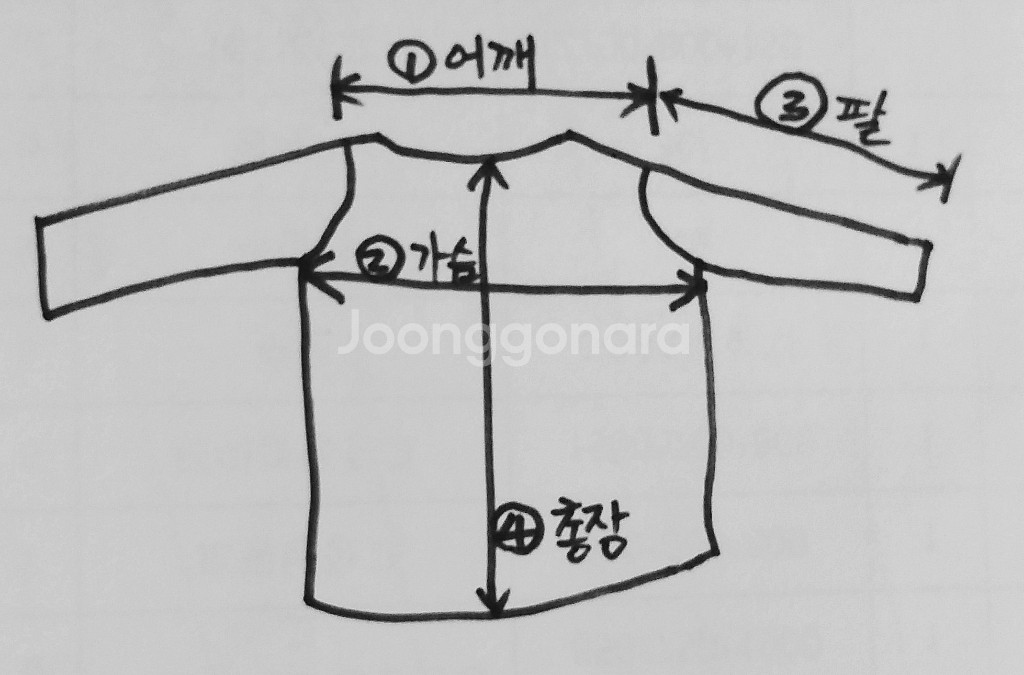 ① 어깨
③ 팔
② 가슴
Joonggonara
④ 총장